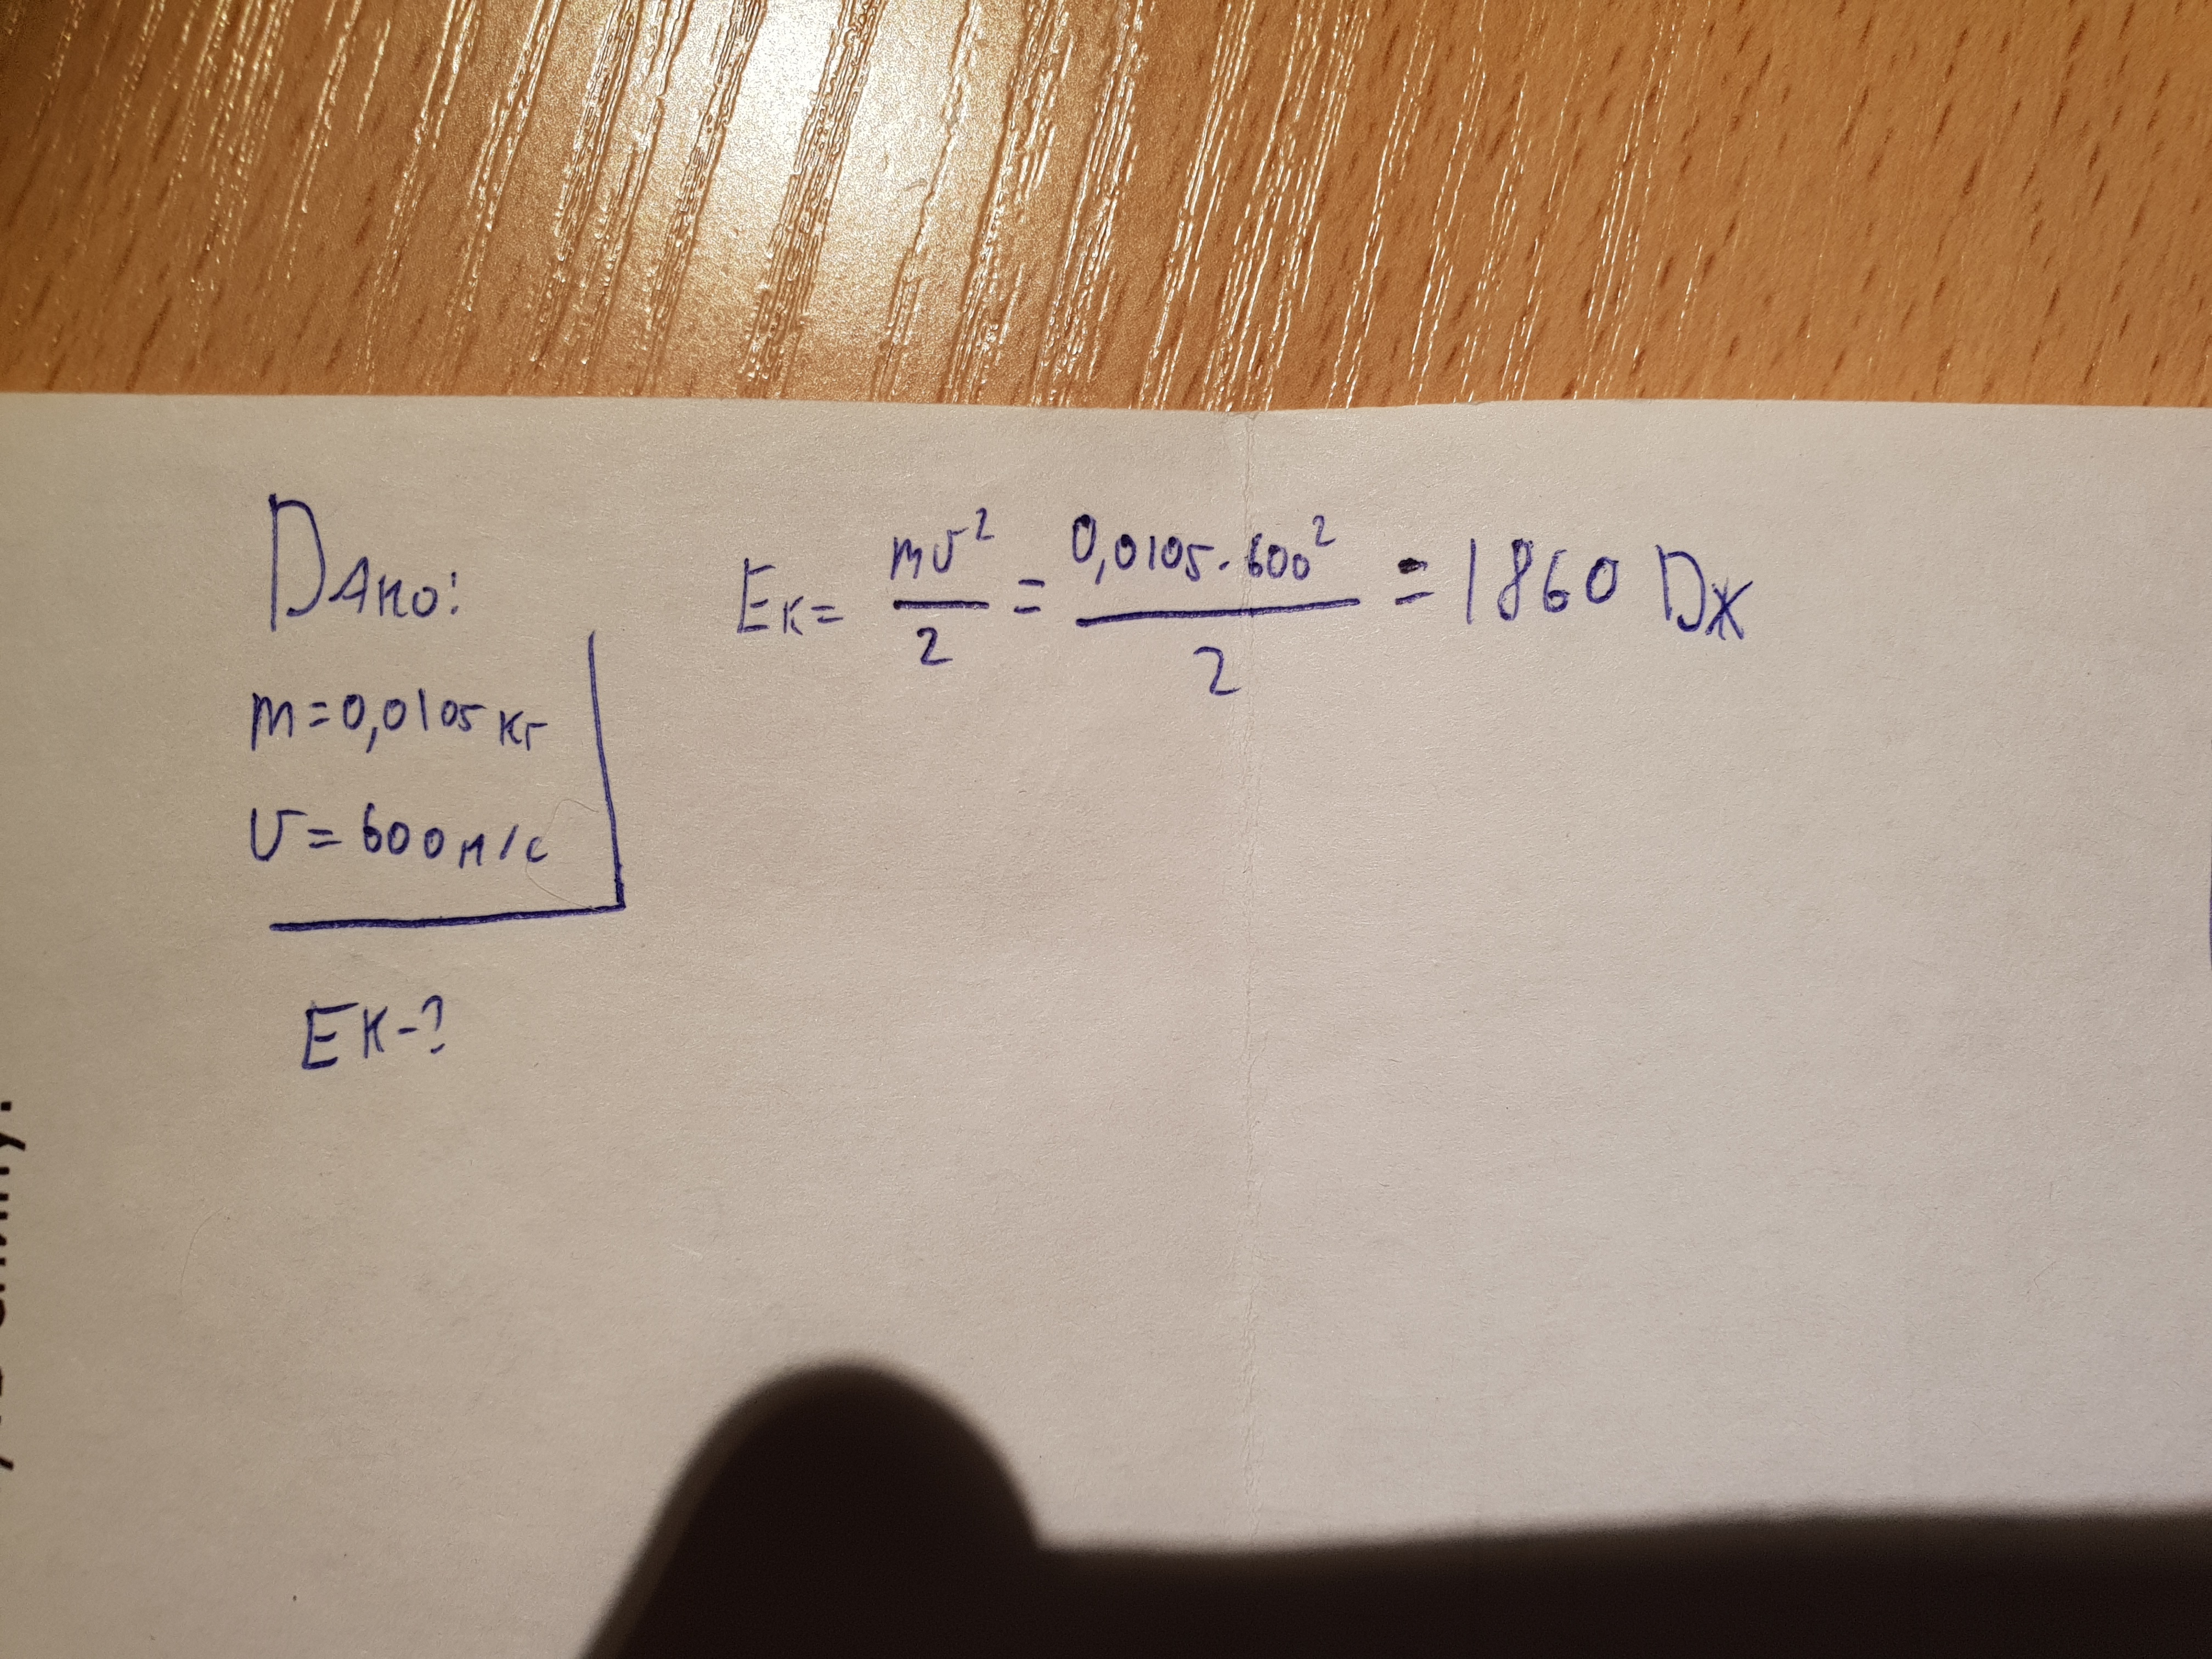 Дано:
m = 0,0105 кг
υ = 600 м/с
Eк - ?
Eк = mυ²/2 = 0,0105 · 600²/2 = 1860 Дж